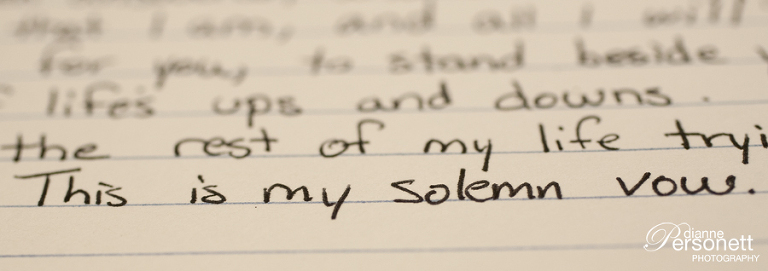 that I am, and all I will
for you, to stand beside
life's ups and downs.
the rest of my life tryi
This is my solemn vow.
dianne
Personett
PHOTOGRAPHY